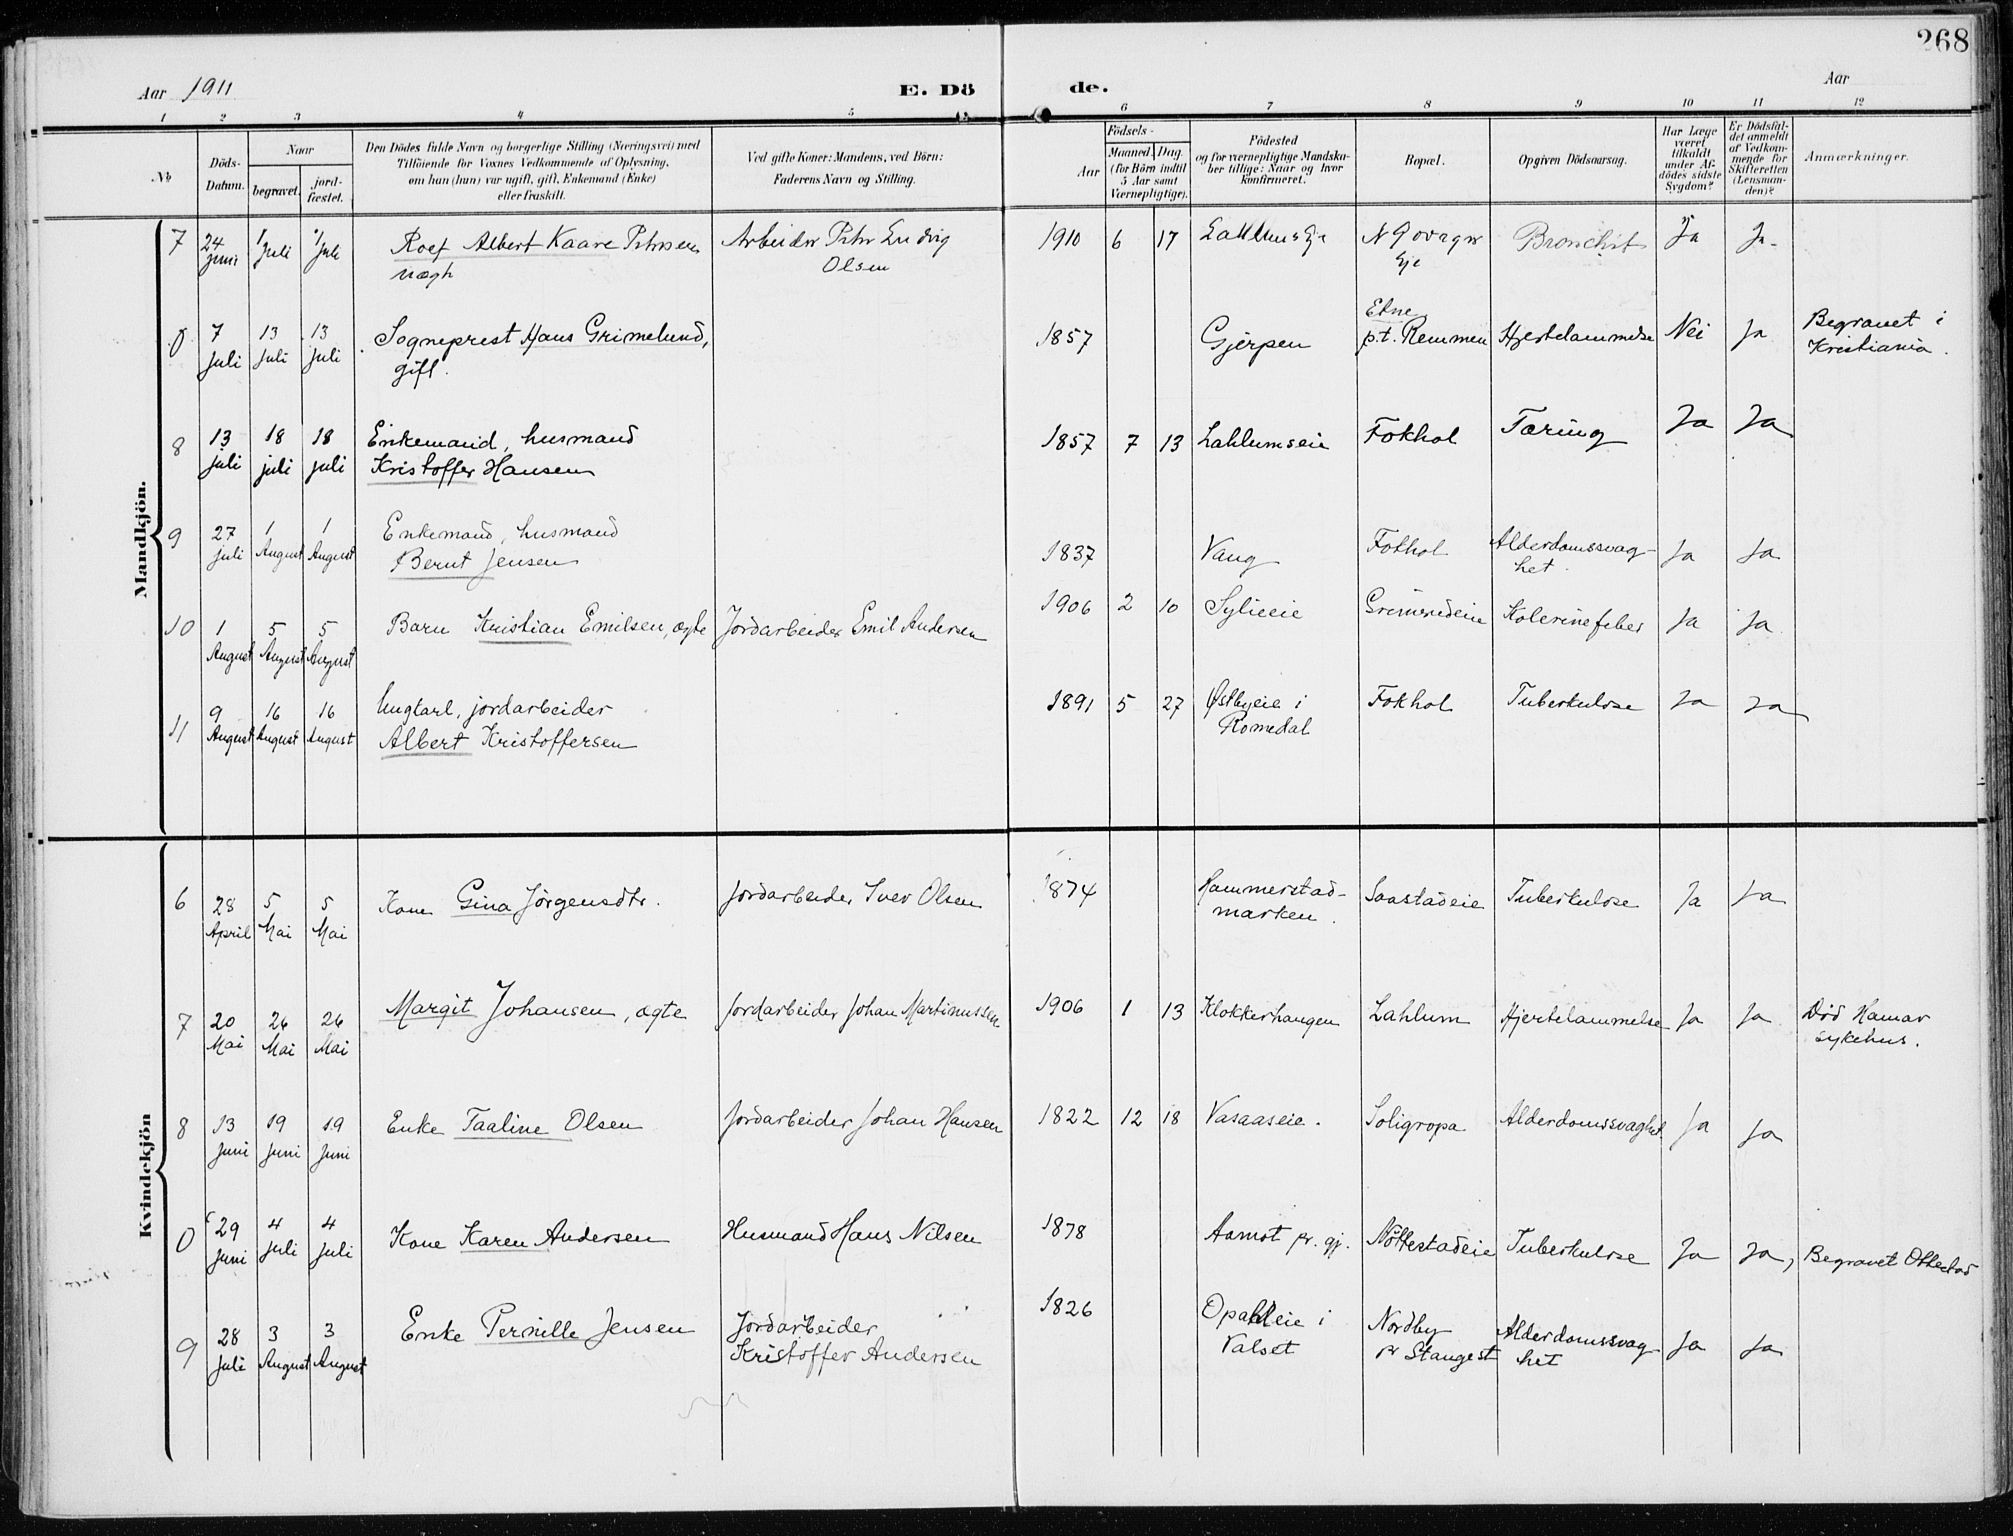 268
Aar 1911
E. Dö
de.
Aar
1 2 3 4 5 6 7 8 9 10 11 12
No
Döds-Datum.
Naar
begravet.
jordfæstet.
Den Dödes fulde Navn og borgerlige Stilling (Næringsvei) med
Tilföiende for Voxnes Vedkommende af Oplysning,
om han (hun) var ugift, gift, Enkemand (Enke)
eller fraskilt.
Ved gifte Koner: Mandens, ved Börn:
Faderens Navn og Stilling.
Födsels-
Aar
Maaned. Dag.
(for Börn indtil
5 Aar samt
Værnepligtige).
Födested
og for værnepligtige Mandskaber tillige: Naar og hvor
konfirmeret.
Bopæl.
Opgiven Dödsaarsag.
Har Læge
været
tilkaldt
under Afdödes sidste
Sygdom?
Er Dödsfaldet anmeldt
af Vedkommende for
Skifteretten
(Lensmanden)?
Anmærkninger.
Mandkjön.
7 24 Juni 1 Juli 1 Juli Albert Kaare Arbeider Ludvig 1910 6 17 Bronchit Ja Ja
uægte Olsen Eje
Etne
0 7 Juli 13 Juli 13 Juli Sogneprest Hans Grimelund, 1857 Gjerpen p.t. Remmen Hjertelammelse Nei Ja Begravet i
gift. Kristiania.
8 13 juli 18 juli 18 juli Enkemand, husmand 1857 7 13 Lahlumseie Fokhol Tæring Ja Ja
Kristoffer Hansen
9 27 juli 1 August 1 August Enkemand, husmand 1837 Vang Fokhol Alderdomssvag-
Bernt Jensen het. Ja Ja
10 1 August 5 August 5 August Barn Kristian Emilsen, ægte Jordarbeider Emil Andersen 1906 2 10 Kolerinefeber Ja Ja
11 9 August 16 August 16 August Ungkarl, jordarbeider 1891 5 27 Østbyeie i Fokhol Tuberkulose Ja Ja
Albert Kristoffersen Romedal
Kvindekjön
6 28 April 5 Mai 5 Mai Kone Gina Jörgensdtr. Jordarbeider Iver Olsen 1874 Hammerstad- Saastadeie Tuberkulose Ja Ja
marken.
7 20 Mai 26 Mai 26 Mai Margit Johansen, ægte Jordarbeider Johan Martinussen 1906 1 13 Klokkerhaugen Lahlum Hjertelammelse Ja Ja Död Hamar
sykehus.
8 13 Juni 19 Juni 19 Juni Enke Taaline Olsen Jordarbeider Johan Hansen 1822 12 18 Vasaaseie. Soligropa Alderdomssvaghet Ja Ja
0 29 Juni 4 Juli 4 Juli Kone Karen Andersen Husmand Hans Nilsen 1878 Aamot pr. gj. Nöttestadeie Tuberkulose Ja Ja, Begravet Ottestad
9 28 Juli 3 August 3 August Enke Pernille Jensen Jordarbeider 1826 Opahleie i Nordby Alderdomssvag-
Kristoffer Andersen Valset pr Stangest het Ja Ja